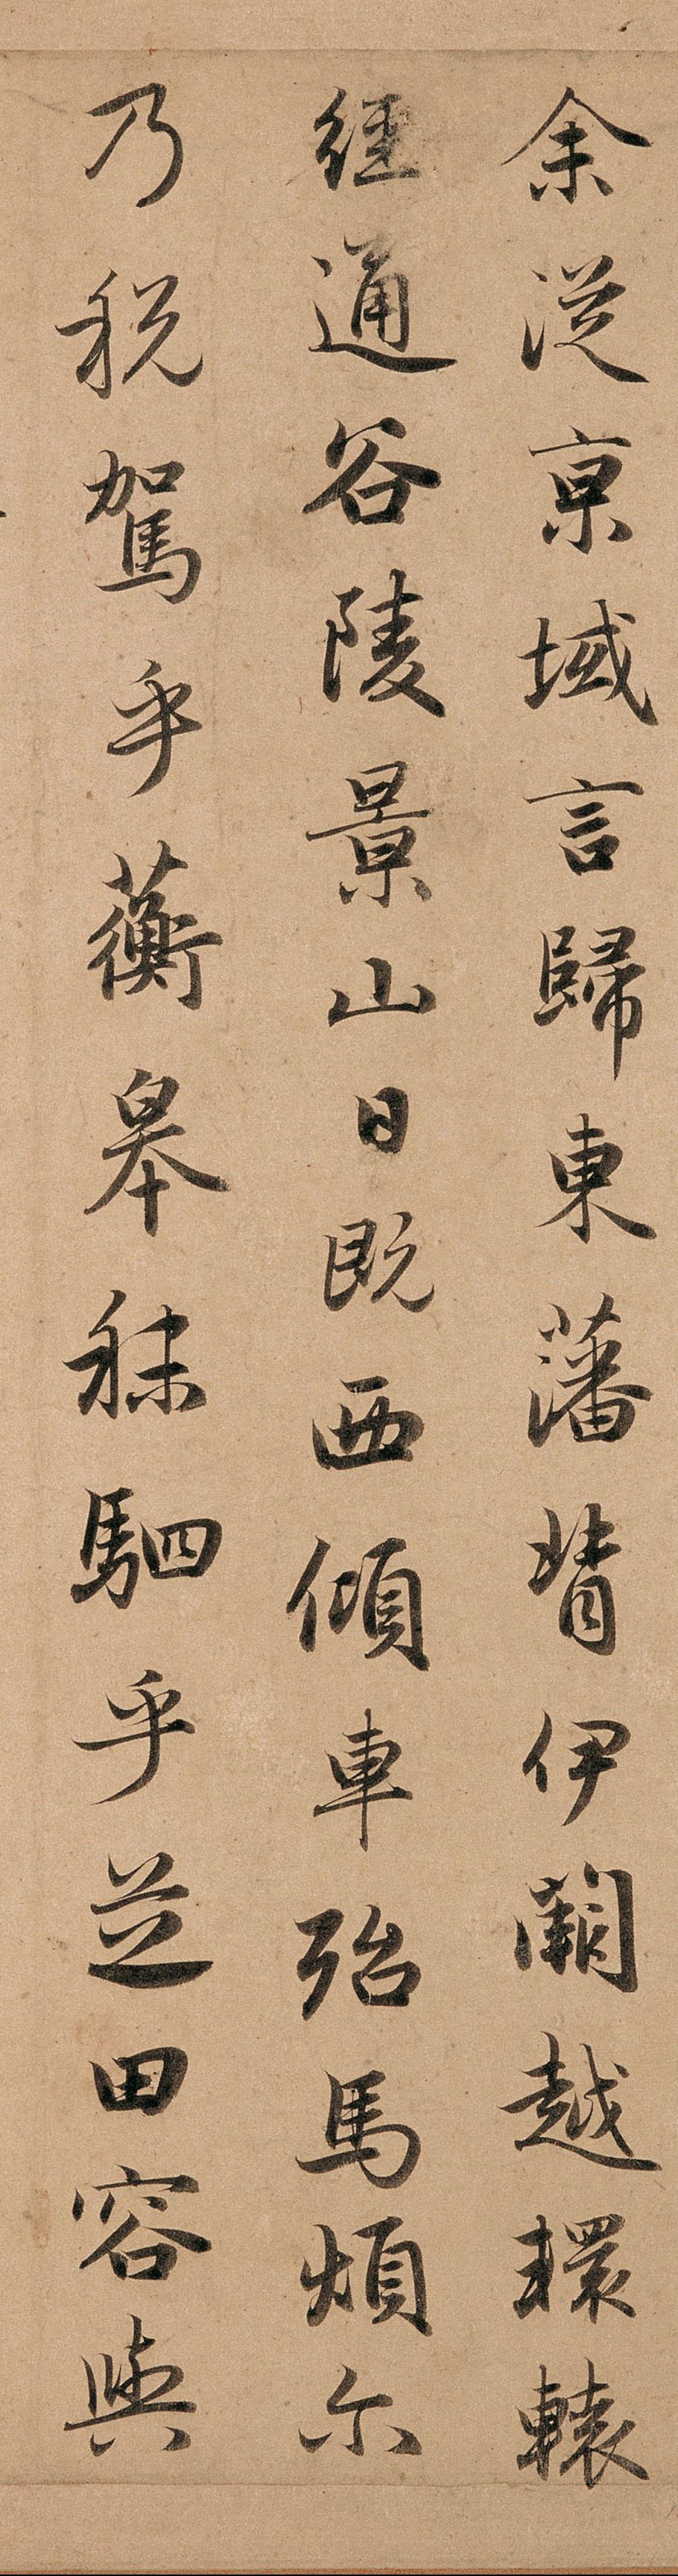 余從京域言歸東藩背伊闕越轘轅
經通谷陵景山日既西傾車殆馬煩尒
乃税駕乎蘅皋秣駟乎芝田容與